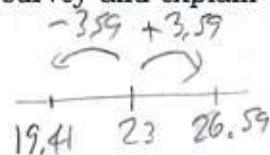 survey and explain
-3,59 +3,59
19,41 23 26.59